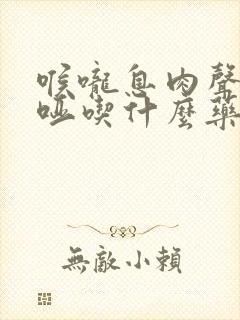 喉嚨息肉聲
啞喫什麼藥
無敵小賴